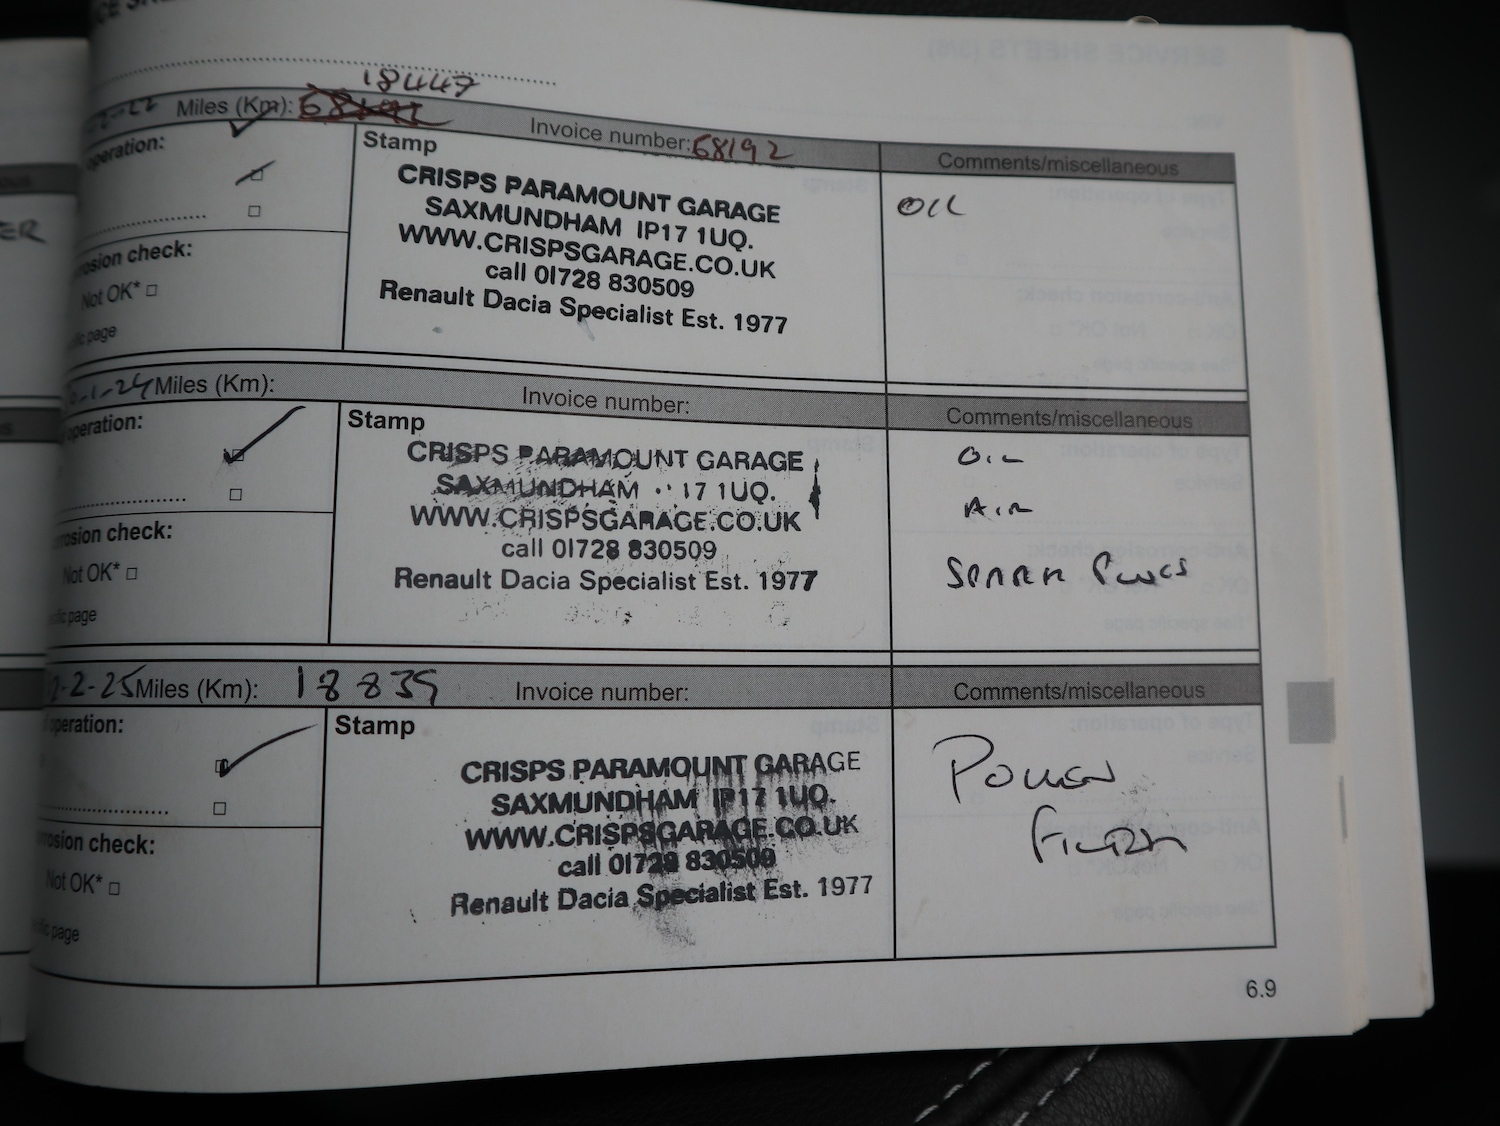 18447
Miles (Km): Invoice number: 68192 Comments/miscellaneous
operation:
Stamp
CRISPS PARAMOUNT GARAGE
SAXMUNDHAM IP17 1UQ.
WWW.CRISPSGARAGE.CO.UK
call 01728 830509
Renault Dacia Specialist Est. 1977
OIL
ER
rosion check:
Not OK*
page
1-24 Miles (Km): Invoice number: Comments/miscellaneous
operation:
Stamp
CRISPS PARAMOUNT GARAGE
SAXMUNDHAM 17 1UQ.
WWW.CRISPSGARAGE.CO.UK
call 01728 830509
Renault Dacia Specialist Est. 1977
OIL
AIR
SPARK PLUGS
rosion check:
Not OK*
page
2-2-25 Miles (Km): 18839 Invoice number: Comments/miscellaneous
operation:
Stamp
CRISPS PARAMOUNT GARAGE
SAXMUNDHAM IP17 1UQ.
WWW.CRISPSGARAGE.CO.UK
call 01728 830509
Renault Dacia Specialist Est. 1977
POLLEN
FILTER
rosion check:
Not OK*
page
6.9